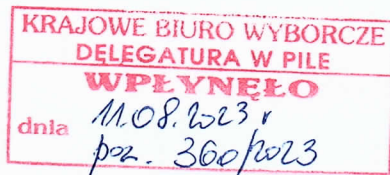 KRAJOWE BIURO WYBORCZE
DELEGATURA W PILE
WPŁYNĘŁO
dnia 11.08.2023 r
poz. 360/2023